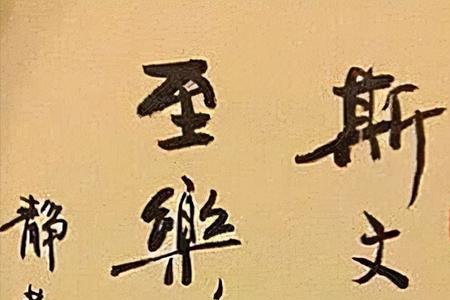 斯文
至樂
静